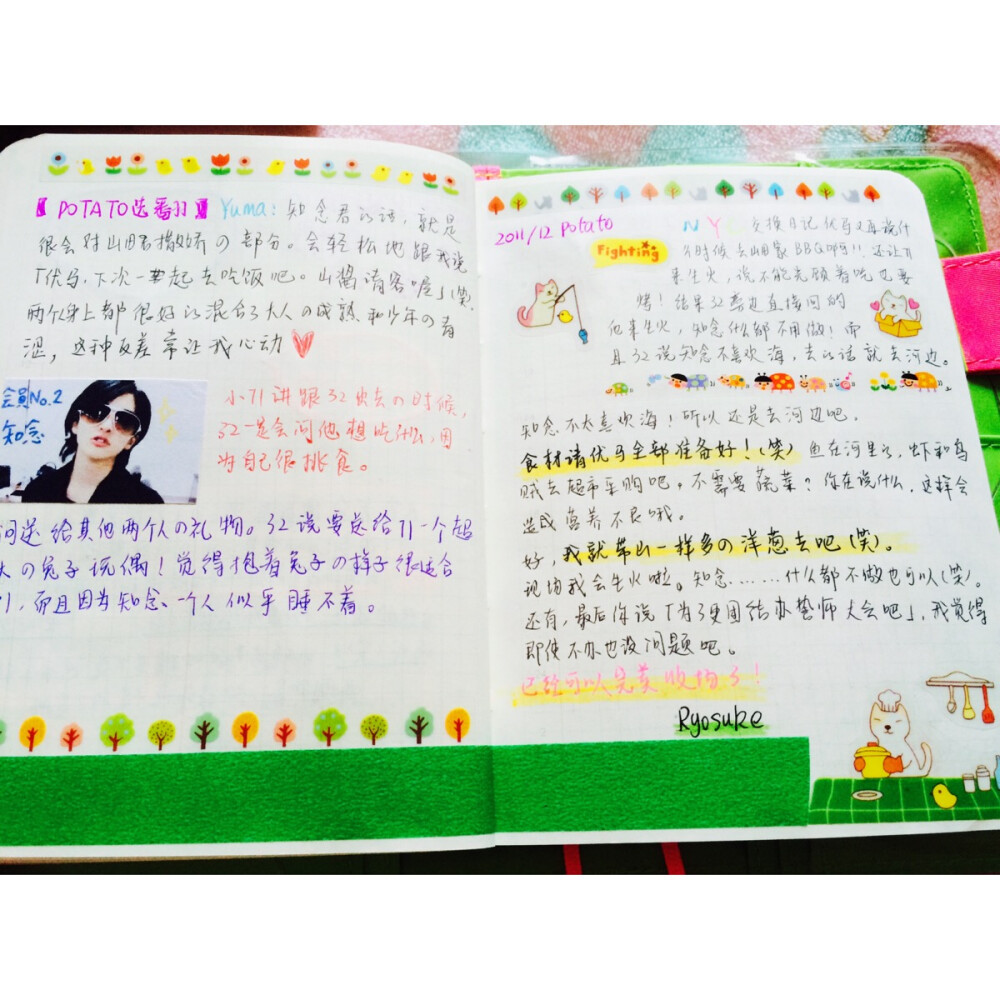 【POTATO选番外】Yuma:知念君的话,就是
很会对山田君撒娇の部分。会轻松地跟我说
「优马,下次一起去吃饭吧。山酱请客喔」(笑)
两个人身上都很好的混合了大人の成熟和少年の青
涩,这种反差常让我心动
会员No.2
知念
小71讲跟32出去の时候,
32一定会问他想吃什么,因
为自己很挑食。
问送给其他两个人の礼物。32说要送给71一个超
大の兔子玩偶!觉得抱着兔子の样子很适合
71,而且因为知念一个人似乎睡不着。
2011/12 Potato
Fighting
NYC 交换日记优马又再说什
么时候去山田家BBQ啊!!还让71
来生火,说不能光顾着吃也要
烤!结果32那边直接回的
他来生火,知念什么都不用做!而
且32说知念不喜欢海,去的话就去河边。
知念不太喜欢海!所以还是去河边吧,
食材请优马全部准备好!(笑)鱼在河里了,虾和乌
贼去超市采购吧。不需要蔬菜?你在说什么,这样会
造成营养不良哦。
好,我就带山一样多の洋葱去吧(笑)。
现场我会生火啦。知念……什么都不做也可以(笑)。
还有,最后你说「为了更团结办誓师大会吧」,我觉得
即使不办也没问题吧。
已经可以完美收场了!
Ryosuke